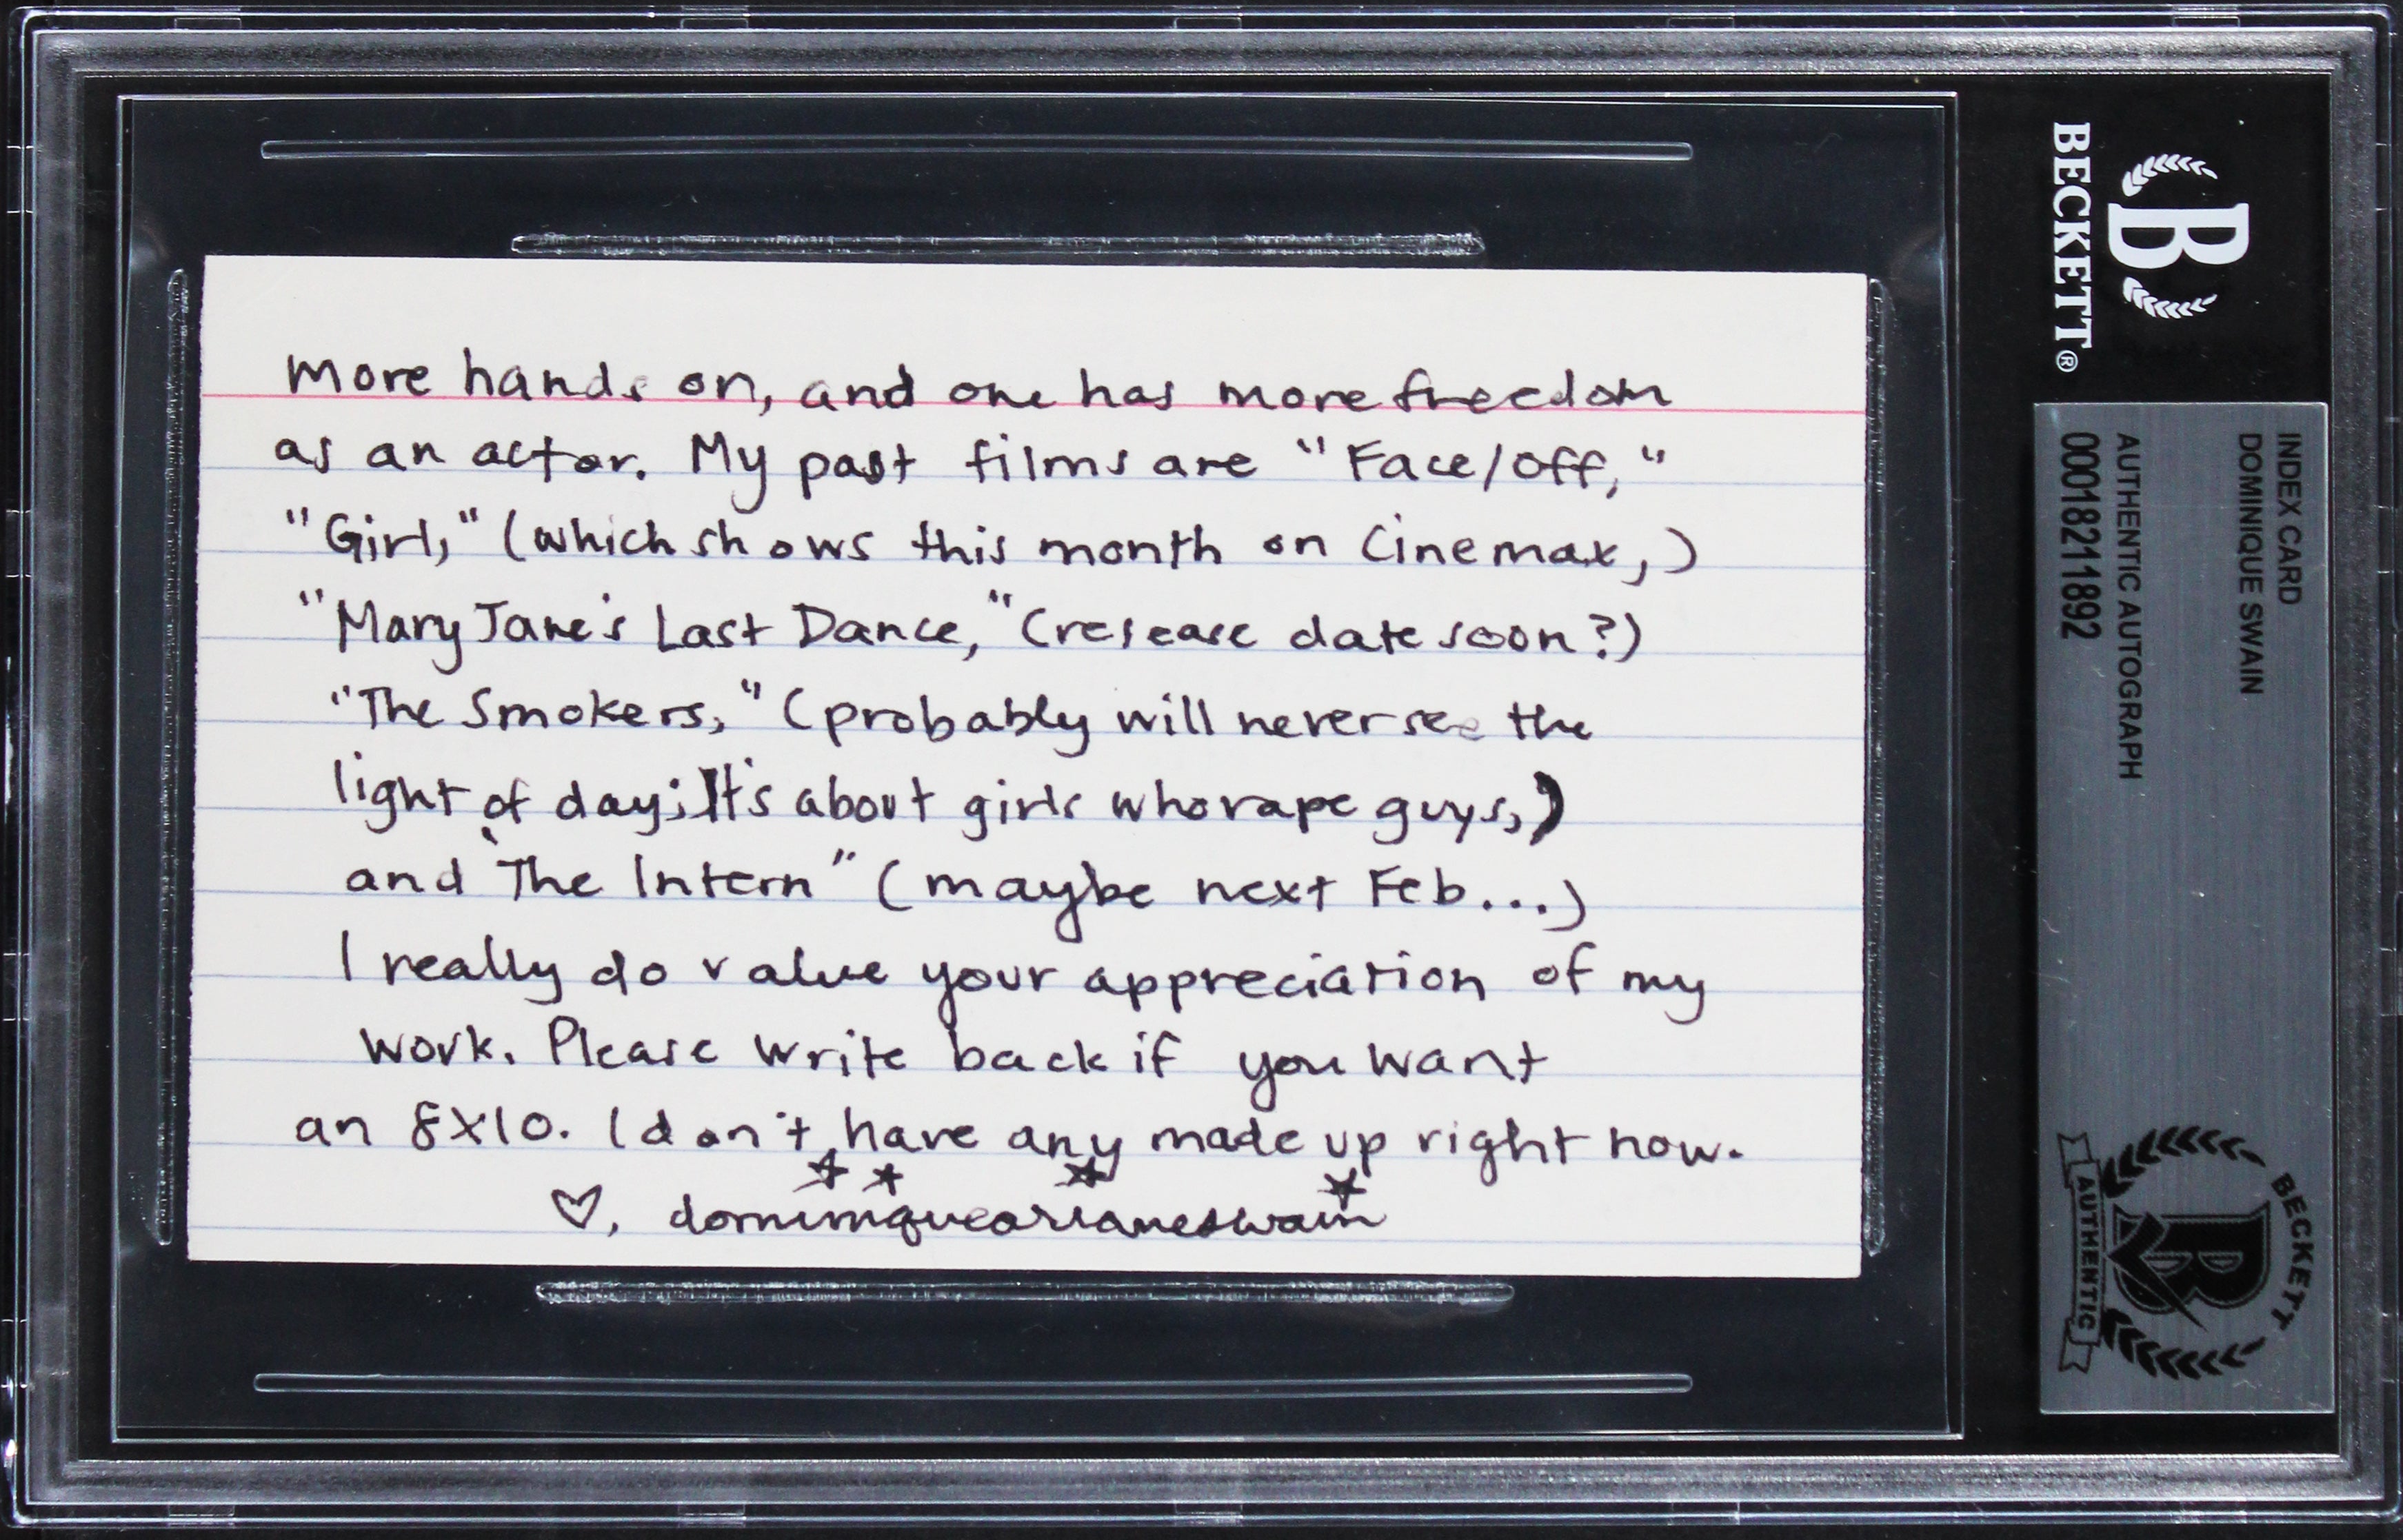 more hands on, and one has more freedom
as an actor. My past films are "Face/Off,"
"Girl," (which shows this month on Cinemax,)
"Mary Jane's Last Dance," (release date soon?)
"The Smokers," (probably will never see the
light of day; It's about girls who rape guys,)
and "The Intern" (maybe next Feb...)
I really do value your appreciation of my
work. Please write back if you want
an 8X10. I don't have any made up right now.
♡, dominiquearianeswain
B
BECKETT®
INDEX CARD
DOMINIQUE SWAIN
AUTHENTIC AUTOGRAPH
00018211892
BECKETT
B
AUTHENTIC